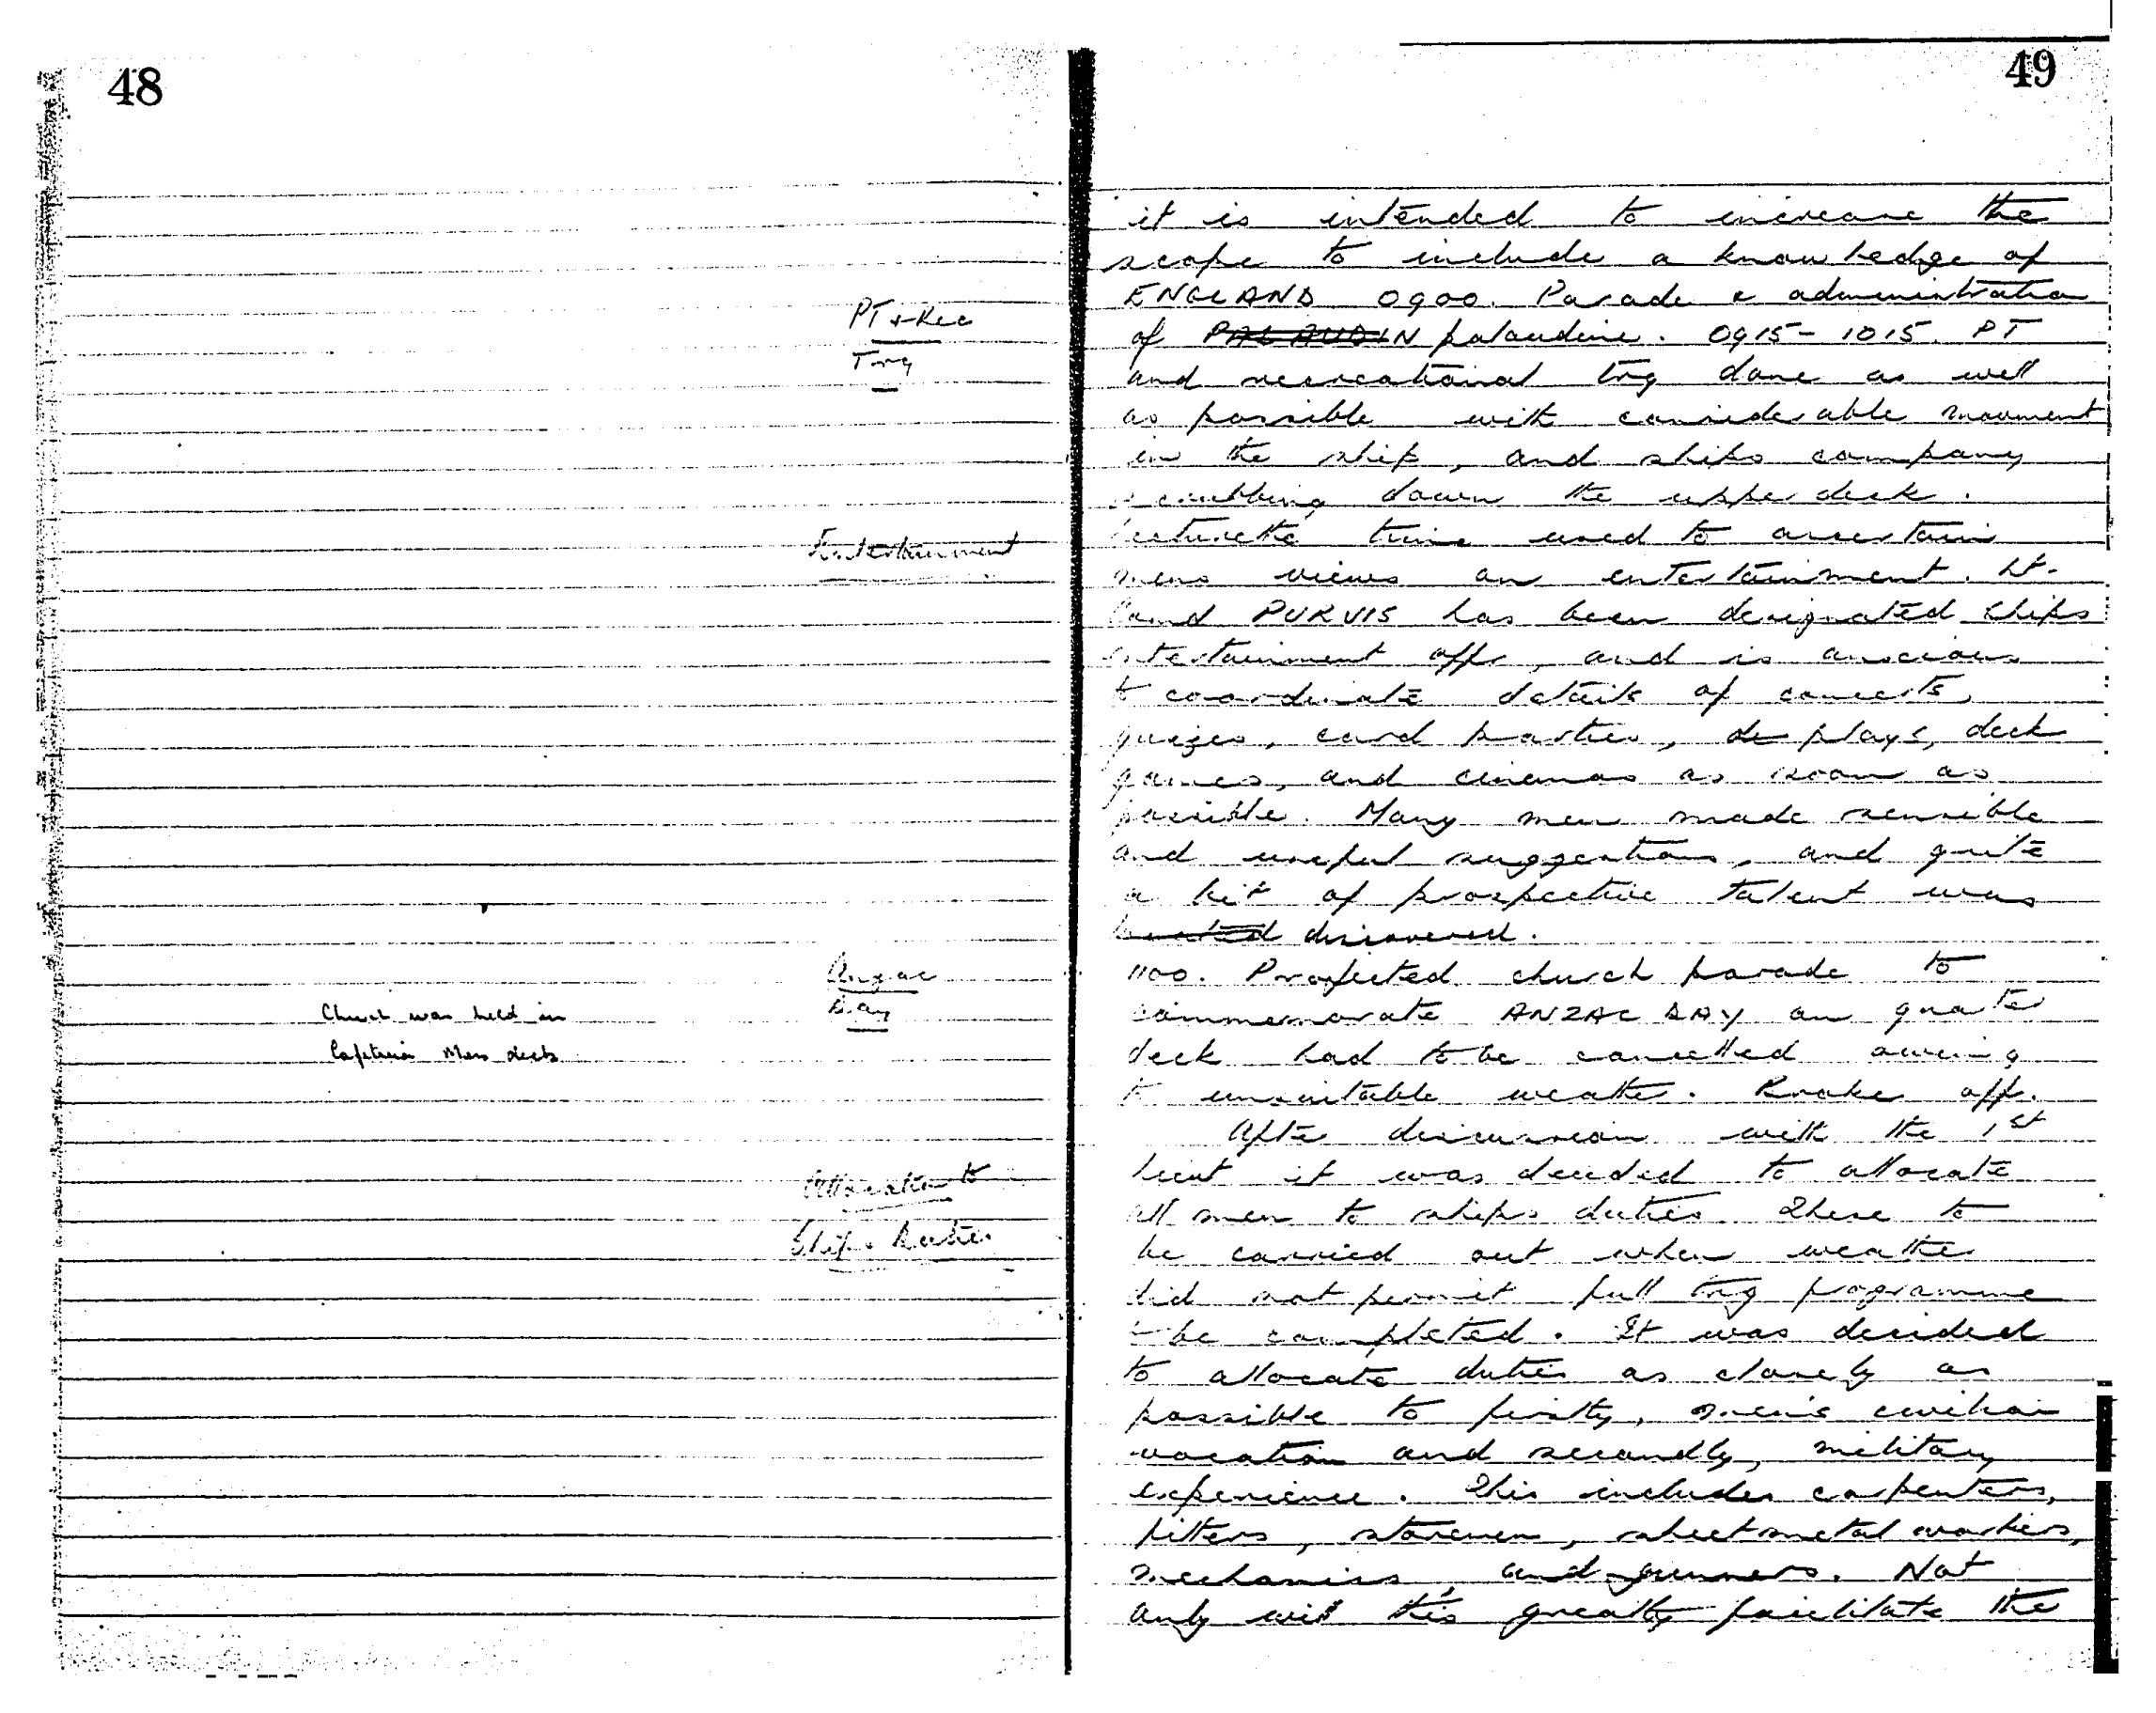 48
PT & Rec
Trg
Entertainment
Anzac
Day
Church was held in
Cafeteria Mess decks
Allocation to
Ships Duties
49
it is intended to increase the
scope to include a knowledge of
ENGLAND 0900. Parade & administration
of PALAUDIN paludrine. 0915 - 1015. PT
and recreational trg done as well
as possible with considerable movement
in the ship, and ships company
scrubbing down the upper deck.
time used to ascertain
mens views on entertainment. Lt.
Comd PURVIS has been designated ships
entertainment offr, and is anxious
to coordinate details of concerts,
quizes, card parties, de plays, deck
games, and cinemas as soon as
possible. Many men made sensible
and useful suggestions, and quite
a bit of prospective talent was
located discovered.
1100. Projected church parade to
commemorate ANZAC DAY on quarter
deck had to be cancelled owing
to unsuitable weather. Broke off.
After discussion with the 1st
Lieut it was decided to allocate
all men to ships duties. These to
be carried out when weather
did not permit full trg programme
to be completed. It was decided
to allocate duties as closely as
possible to firstly, men's civilian
vocation and secondly, military
experience. This includes carpenters,
fitters, storemen, sheetmetal workers,
mechanics, and gunners. Not
only will this greatly facilitate the